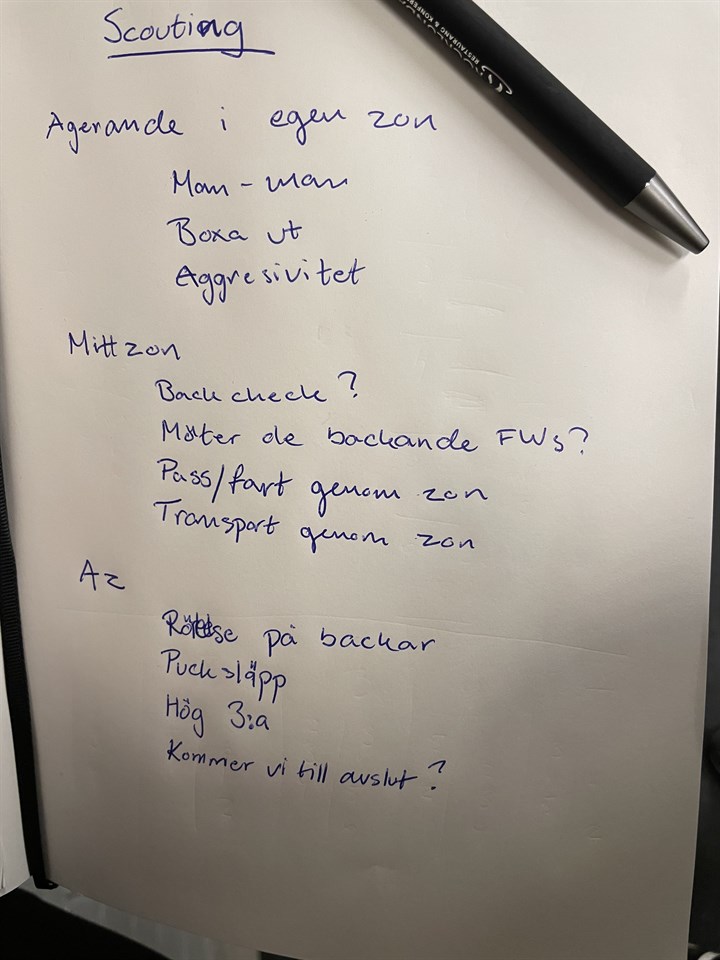 Scouting
RESTAURANG & KONFER
Agerande i egen zon
Man - man
Boxa ut
Aggresivitet
Mittzon
Back check?
Möter de backande FWs?
Pass/fart genom zon
Transport genom zon
Az
på backar
Pucksläpp
Hög 3:a
Kommer vi till avslut?